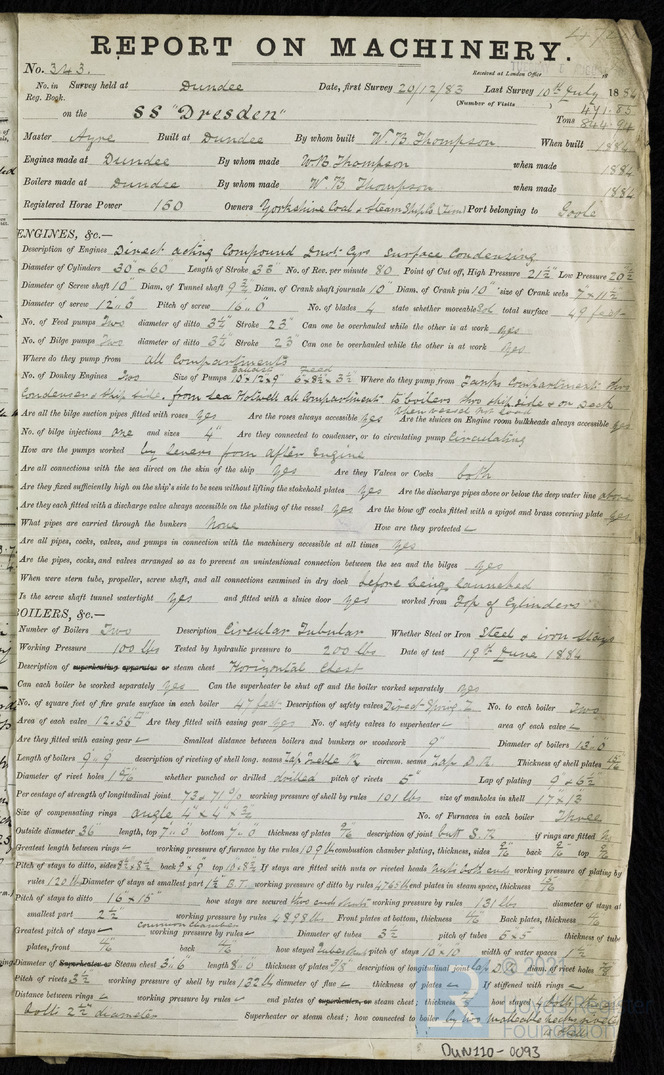 REPORT ON MACHINERY.
No. 343.
Received at London Office
No. in Survey held at Dundee Date, first Survey 20/12/83 Last Survey 10th July 1884
Reg. Book.
(Number of Visits )
on the SS "Dresden" Tons 471.83
844.94
Master Ayre Built at Dundee By whom built W. B. Thompson When built 1884
Engines made at Dundee By whom made W. B. Thompson when made 1884
Boilers made at Dundee By whom made W. B. Thompson when made 1884
Registered Horse Power 150 Owners Yorkshire Coal & Steam Ship Co (Lim) Port belonging to Goole
ENGINES, &c.—
Description of Engines Direct acting Compound Invt. Cyrs. Surface Condensing
Diameter of Cylinders 30" & 60 Length of Stroke 33" No. of Rev. per minute 80 Point of Cut off, High Pressure 21½" Low Pressure 20½
Diameter of Screw shaft 10" Diam. of Tunnel shaft 9½ Diam. of Crank shaft journals 10" Diam. of Crank pin 10" size of Crank webs 7" × 11½"
Diameter of screw 12'..0" Pitch of screw 16'..0" No. of blades 4 state whether moveable Sol. total surface 49 feet
No. of Feed pumps Two diameter of ditto 3½" Stroke 23" Can one be overhauled while the other is at work Yes
No. of Bilge pumps Two diameter of ditto 3½" Stroke 23" Can one be overhauled while the other is at work Yes
Where do they pump from All Compartments
No. of Donkey Engines Two Size of Pumps Ballast 10" × 12" × 9" Feed 6" × 8½" × 3½ Where do they pump from Tanks Compartments thro
Condenser & Ship side. from Sea Hotwell all Compartments to boilers thro ship side & on deck
when vessel not load
Are all the bilge suction pipes fitted with roses Yes Are the roses always accessible Yes Are the sluices on Engine room bulkheads always accessible Yes
No. of bilge injections one and sizes 4" Are they connected to condenser, or to circulating pump Circulating
How are the pumps worked by levers from after Engine
Are all connections with the sea direct on the skin of the ship Yes Are they Valves or Cocks both
Are they fixed sufficiently high on the ship's side to be seen without lifting the stokehold plates Yes Are the discharge pipes above or below the deep water line above
Are they each fitted with a discharge valve always accessible on the plating of the vessel Yes Are the blow off cocks fitted with a spigot and brass covering plate Yes
What pipes are carried through the bunkers None How are they protected
Are all pipes, cocks, valves, and pumps in connection with the machinery accessible at all times Yes
Are the pipes, cocks, and valves arranged so as to prevent an unintentional connection between the sea and the bilges Yes
When were stern tube, propeller, screw shaft, and all connections examined in dry dock before being launched
Is the screw tunnel watertight Yes and fitted with a sluice door Yes worked from Top of Cylinders
BOILERS, &c.—
Number of Boilers Two Description Circular Tubular Whether Steel or Iron Steel & iron stays
Working Pressure 100 lbs Tested by hydraulic pressure to 200 lbs Date of test 19th June 1884
Description of superheating apparatus or steam chest Horizontal Chest
Can each boiler be worked separately Yes Can the superheater be shut off and the boiler worked separately Yes
No. of square feet of fire grate surface in each boiler 47 feet Description of safety valves Direct Spring No. to each boiler Two
Area of each valve Are they fitted with easing gear Yes No. of safety valves to superheater area of each valve
Are they fitted with easing gear Smallest distance between boilers and bunkers or woodwork 9" Diameter of boilers 13'..0"
Length of boilers 9'..9 description of riveting of shell long. seams Lap Treble R circum. seams Lap. D. R. Thickness of shell plates
Diameter of rivet holes whether punched or drilled drilled pitch of rivets 5" Lap of plating 9" & 6½"
Per centage of strength of longitudinal joint 73 & 71% working pressure of shell by rules 101 lbs size of manholes in shell 17" × 13"
Size of compensating rings angle 4" × 4" × ½" No. of Furnaces in each boiler Three
Outside diameter 36" length, top 7'..0" bottom 7'..0 thickness of plates 9/16" description of joint butt S. R. if rings are fitted
Greatest length between rings working pressure of furnace by the rules 109 lbs combustion chamber plating, thickness, sides 9/16" back 9/16" top 9/16
Pitch of stays to ditto, sides 8½ × 8½ back 9" × 9" top 10 × 8½ If stays are fitted with nuts or riveted heads Nuts both end working pressure of plating by
rules 120 lbs Diameter of stays at smallest part 1½" B.T. working pressure of ditto by rules end plates in steam space, thickness
Pitch of stays to ditto 16 × 15" how stays are secured working pressure by rules 131 lbs diameter of stays at
smallest part 2½ working pressure by rules 4898 lbs Front plates at bottom, thickness Back plates, thickness
common chamber
Greatest pitch of stays working pressure by rules Diameter of tubes 3½ pitch of tubes 5 × 5" thickness of tube
plates, front back how stayed pitch of stays 10" × 10 width of water spaces
Diameter of Superheater or Steam chest 3'..6" length 8'..0 thickness of plates description of longitudinal joint Lap D. R. diam. of rivet holes
Pitch of rivets 3½ working pressure of shell by rules 132 lbs diameter of flue thickness of plates If stiffened with rings
Distance between rings working pressure by rules end plates of superheater, or steam chest; thickness how stayed
bolts 2½ diameter Superheater or steam chest; how connected to boiler by two malleable necks
Lloyd's Register
Foundation
DUN110-0093